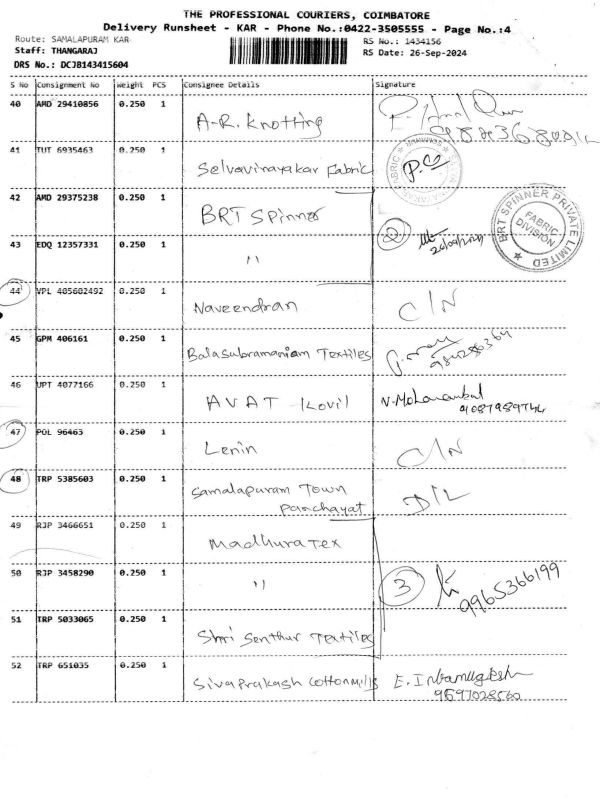 THE PROFESSIONAL COURIERS, COIMBATORE
Delivery Runsheet - KAR - Phone No.:0422-3505555 - Page No.:4
Route: SAMALAPURAM KAR
RS No.: 1434156
Staff: THANGARAJ
RS Date: 26-Sep-2024
DRS No.: DCJB143415604
S No Consignment No weight PCS Consignee Details Signature
40 AMD 29410856 0.250 1 A-R. Knotting
41 TUT 6935463 0.250 1 Selvavinayakar Fabric P.C
42 AMD 29375238 0.250 1 BRT Spinner
43 EDQ 12357331 0.250 1 " 2 26/09/2024
BRT SPINNER PRIVATE LIMITED
FABRIC
DIVISION
44 VPL 405602492 0.250 1 Naveendran C/N
45 GPM 406161 0.250 1 Balasubramaniam Textiles
46 UPT 4077166 0.250 1 AVAT Kovil
47 POL 96463 0.250 1 Lenin C/N
48 TRP 5385603 0.250 1 Samalapuram Town
Panchayat D/L
49 RJP 3466651 0.250 1 Madhura Tex
50 RJP 3458290 0.250 1 " 3 9965366199
51 TRP 5033065 0.250 1 Shri Senthur Textiles
52 TRP 651035 0.250 1 Siva Prakash Cotton Mills
9597028560